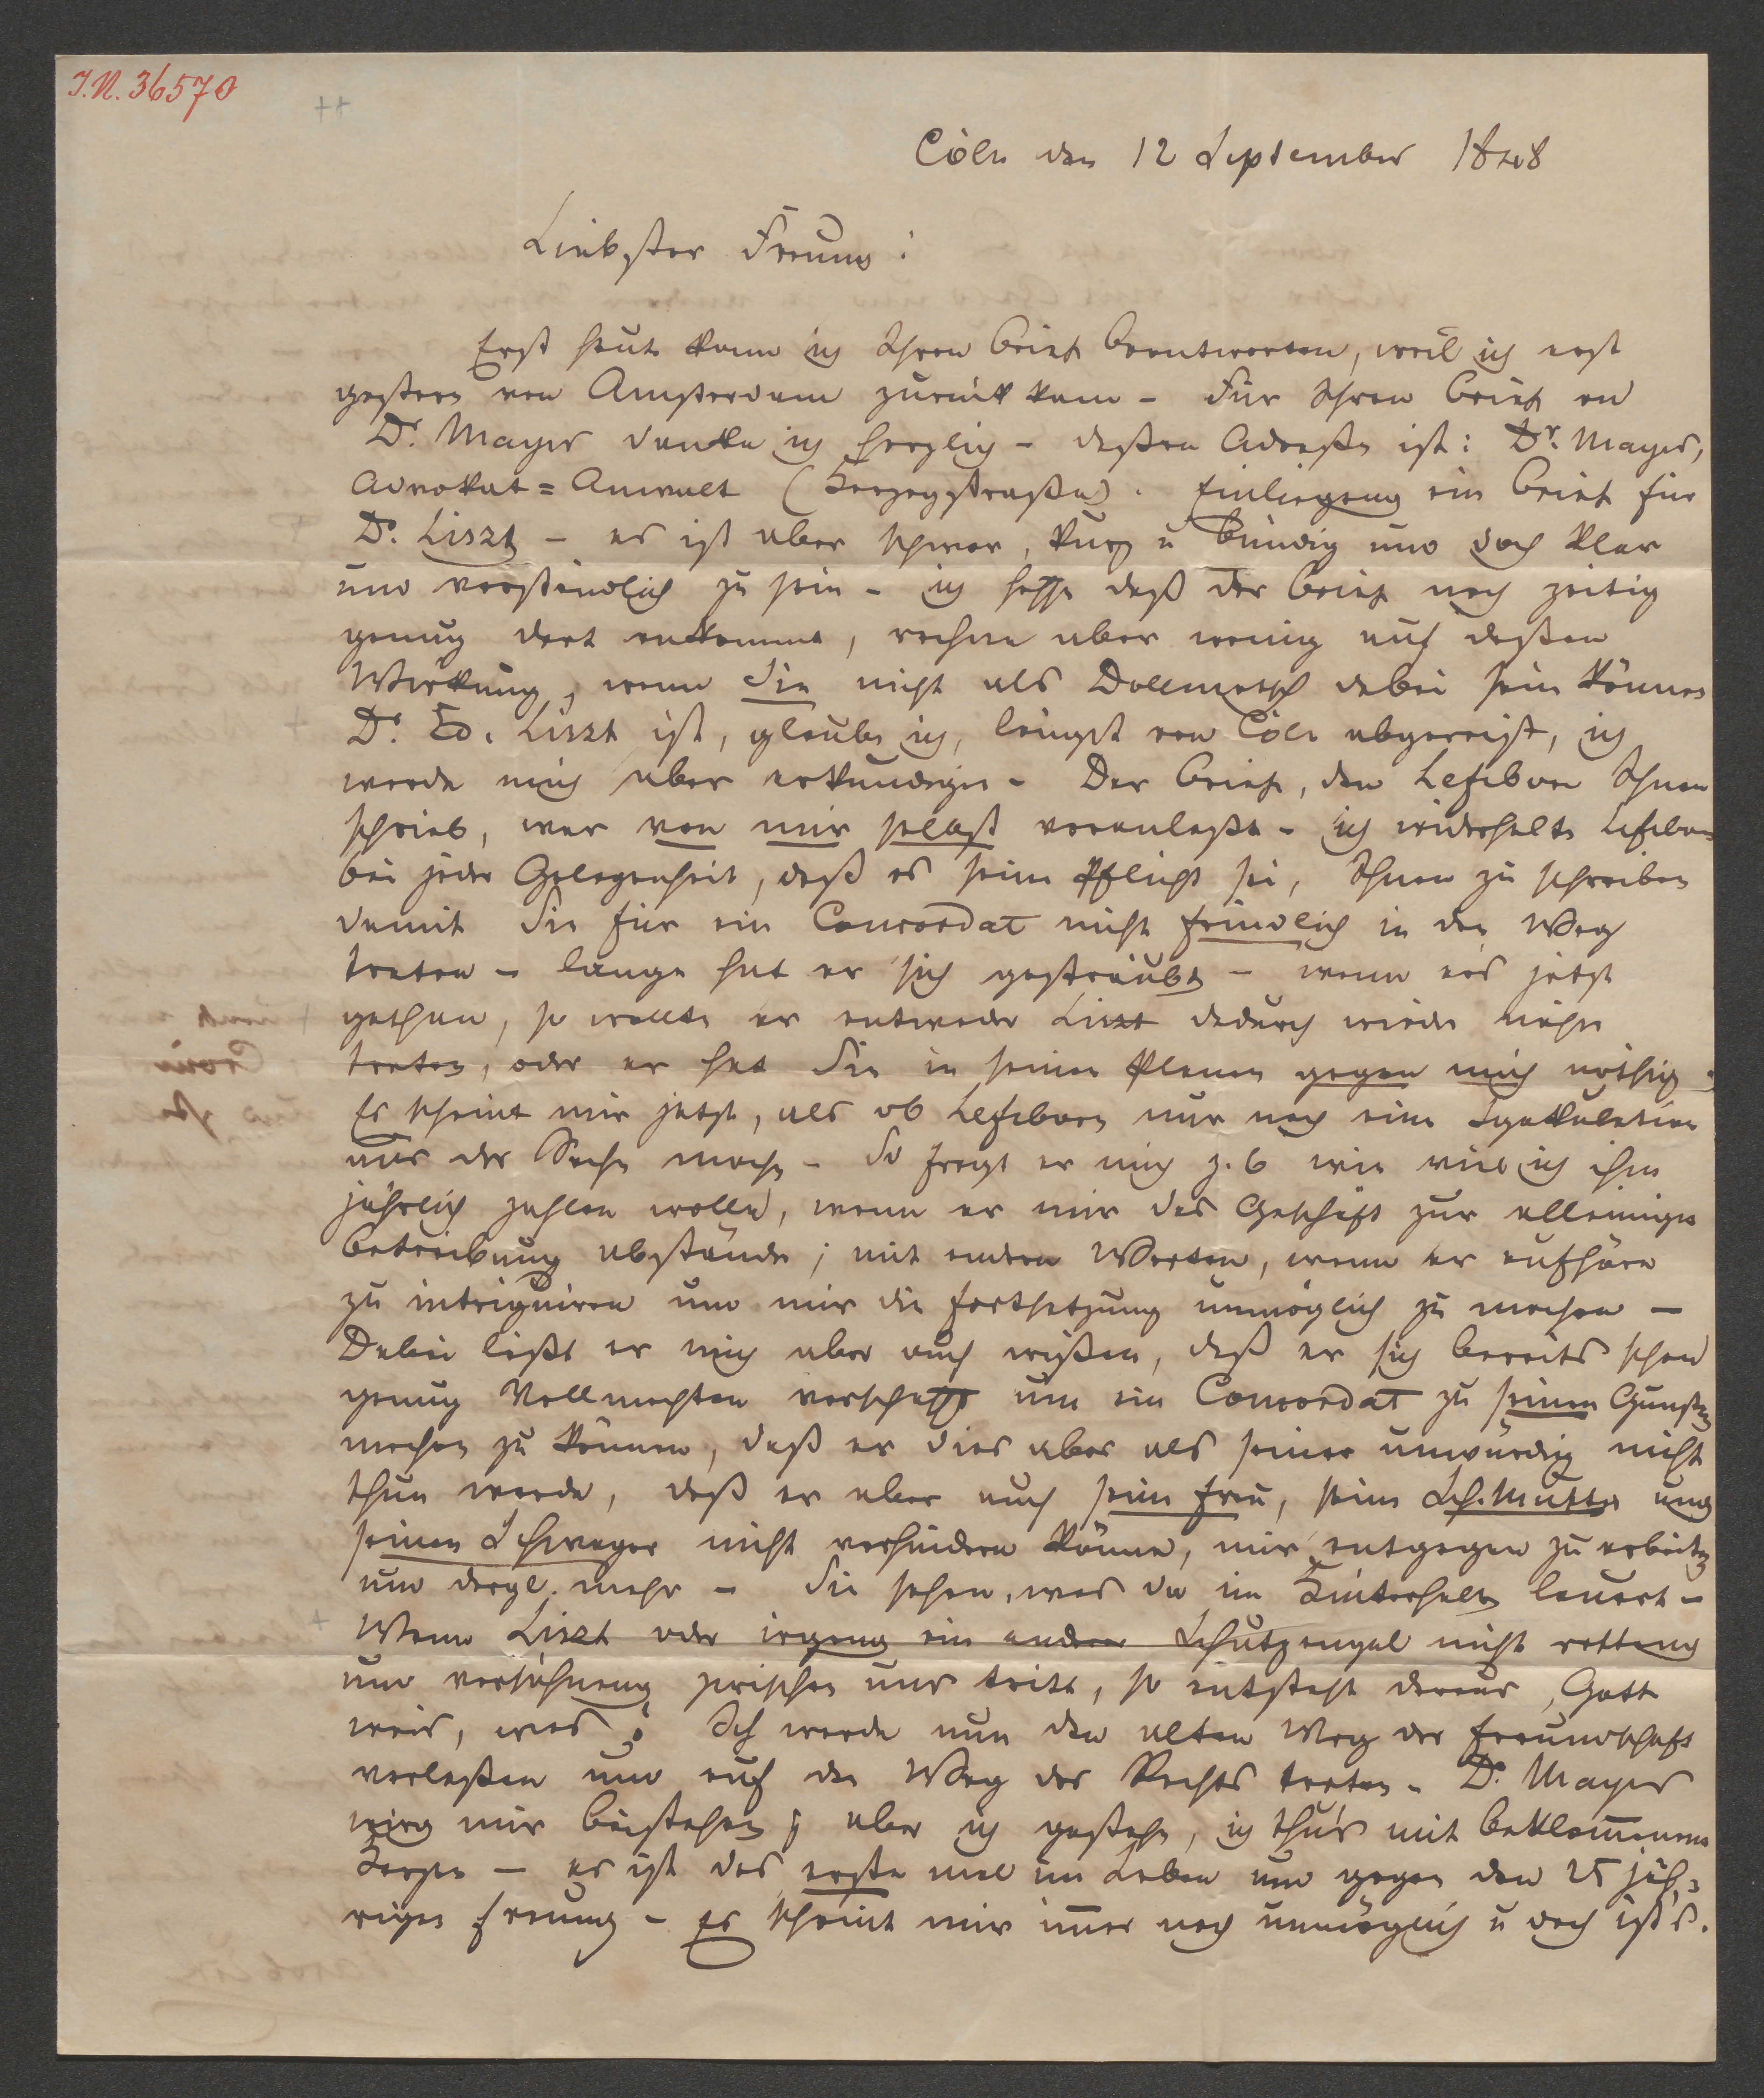 I.N. 36570
Cöln den 12 September 1848
Liebster Freund!
Erst heute kann ich Ihren Brief beantworten, weil ich erst
gestern von Amsterdam zurück kam – Für Ihren Brief an
Dr. Mayer danke ich herzlich – dessen Adresse ist: Dr. Mayer,
Advokat=Anwalt (Herzogstraße). Einliegend ein Brief für
Dr. Liszt – es ist aber schwer, kurz u bündig und doch klar
und verständlich zu sein – ich hoffe daß der Brief noch zeitig
genug dort ankommt, rechne aber wenig auf deßen
Wirkung, wenn Sie nicht als Dollmetsch dabei sein können
Dr. Ed. Liszt ist, glaube ich, längst von Cöln abgereist, ich
werde mich aber erkundigen – Der Brief, den Lefebvre Ihnen
schrieb, war von mir selbst veranlaßt – ich wiederholte Lefebvre
bei jeder Gelegenheit, daß es seine Pflicht sei, Ihnen zu schreiben
damit Sie für ein Concordat nicht feindlich in den Weg
treten – lange hat er sich gesträubt – wenn er's jetzt
gethan, so wollte er entweder Liszt dadurch wieder näher
treten, oder er hat Sie in seinen Planen gegen mich nöthig.
Es scheint mir jetzt, als ob Lefebvre nur noch eine Spekulation
aus der Sache mache – So fragt er mich z. b wie viel ich ihm
jährlich zahlen wolle, wenn er mir das Geschäft zur alleinigen
Betreibung abstände; mit andern Worten, wenn er aufhöre
zu intriguiren und mir die Fortsetzung unmöglich zu machen –
Dabei läßt er mich aber auch wißen, daß er sich bereits schon
genug Vollmachten verschafft um ein Concordat zu seinen Gunsten
machen zu können, daß er dies aber als seiner unwürdig nicht
thun werde, daß er aber auch seine Frau, seine Sch.Mutter und
seinen Schwager nicht verhindern könne, mir entgegen zu arbeiten
und dergl. mehr – Sie sehen, was da im Hinterhalt lauert –
Wenn Liszt oder irgend ein anderer Schutzengel nicht rettend
und versöhnend zwischen uns tritt, so entsteht daraus, Gott
weis, was? Ich werde nun den alten Weg der Freundschaft
verlaßen und auf den Weg des Rechts treten – Dr. Mayer
wird mir beistehen; aber ich gestehe, ich thu's mit beklommenem
Herzen – es ist das erste mal im Leben und gegen den 25 jäh-
rigen Freund – Es scheint mir immer noch unmöglich u doch ist's.